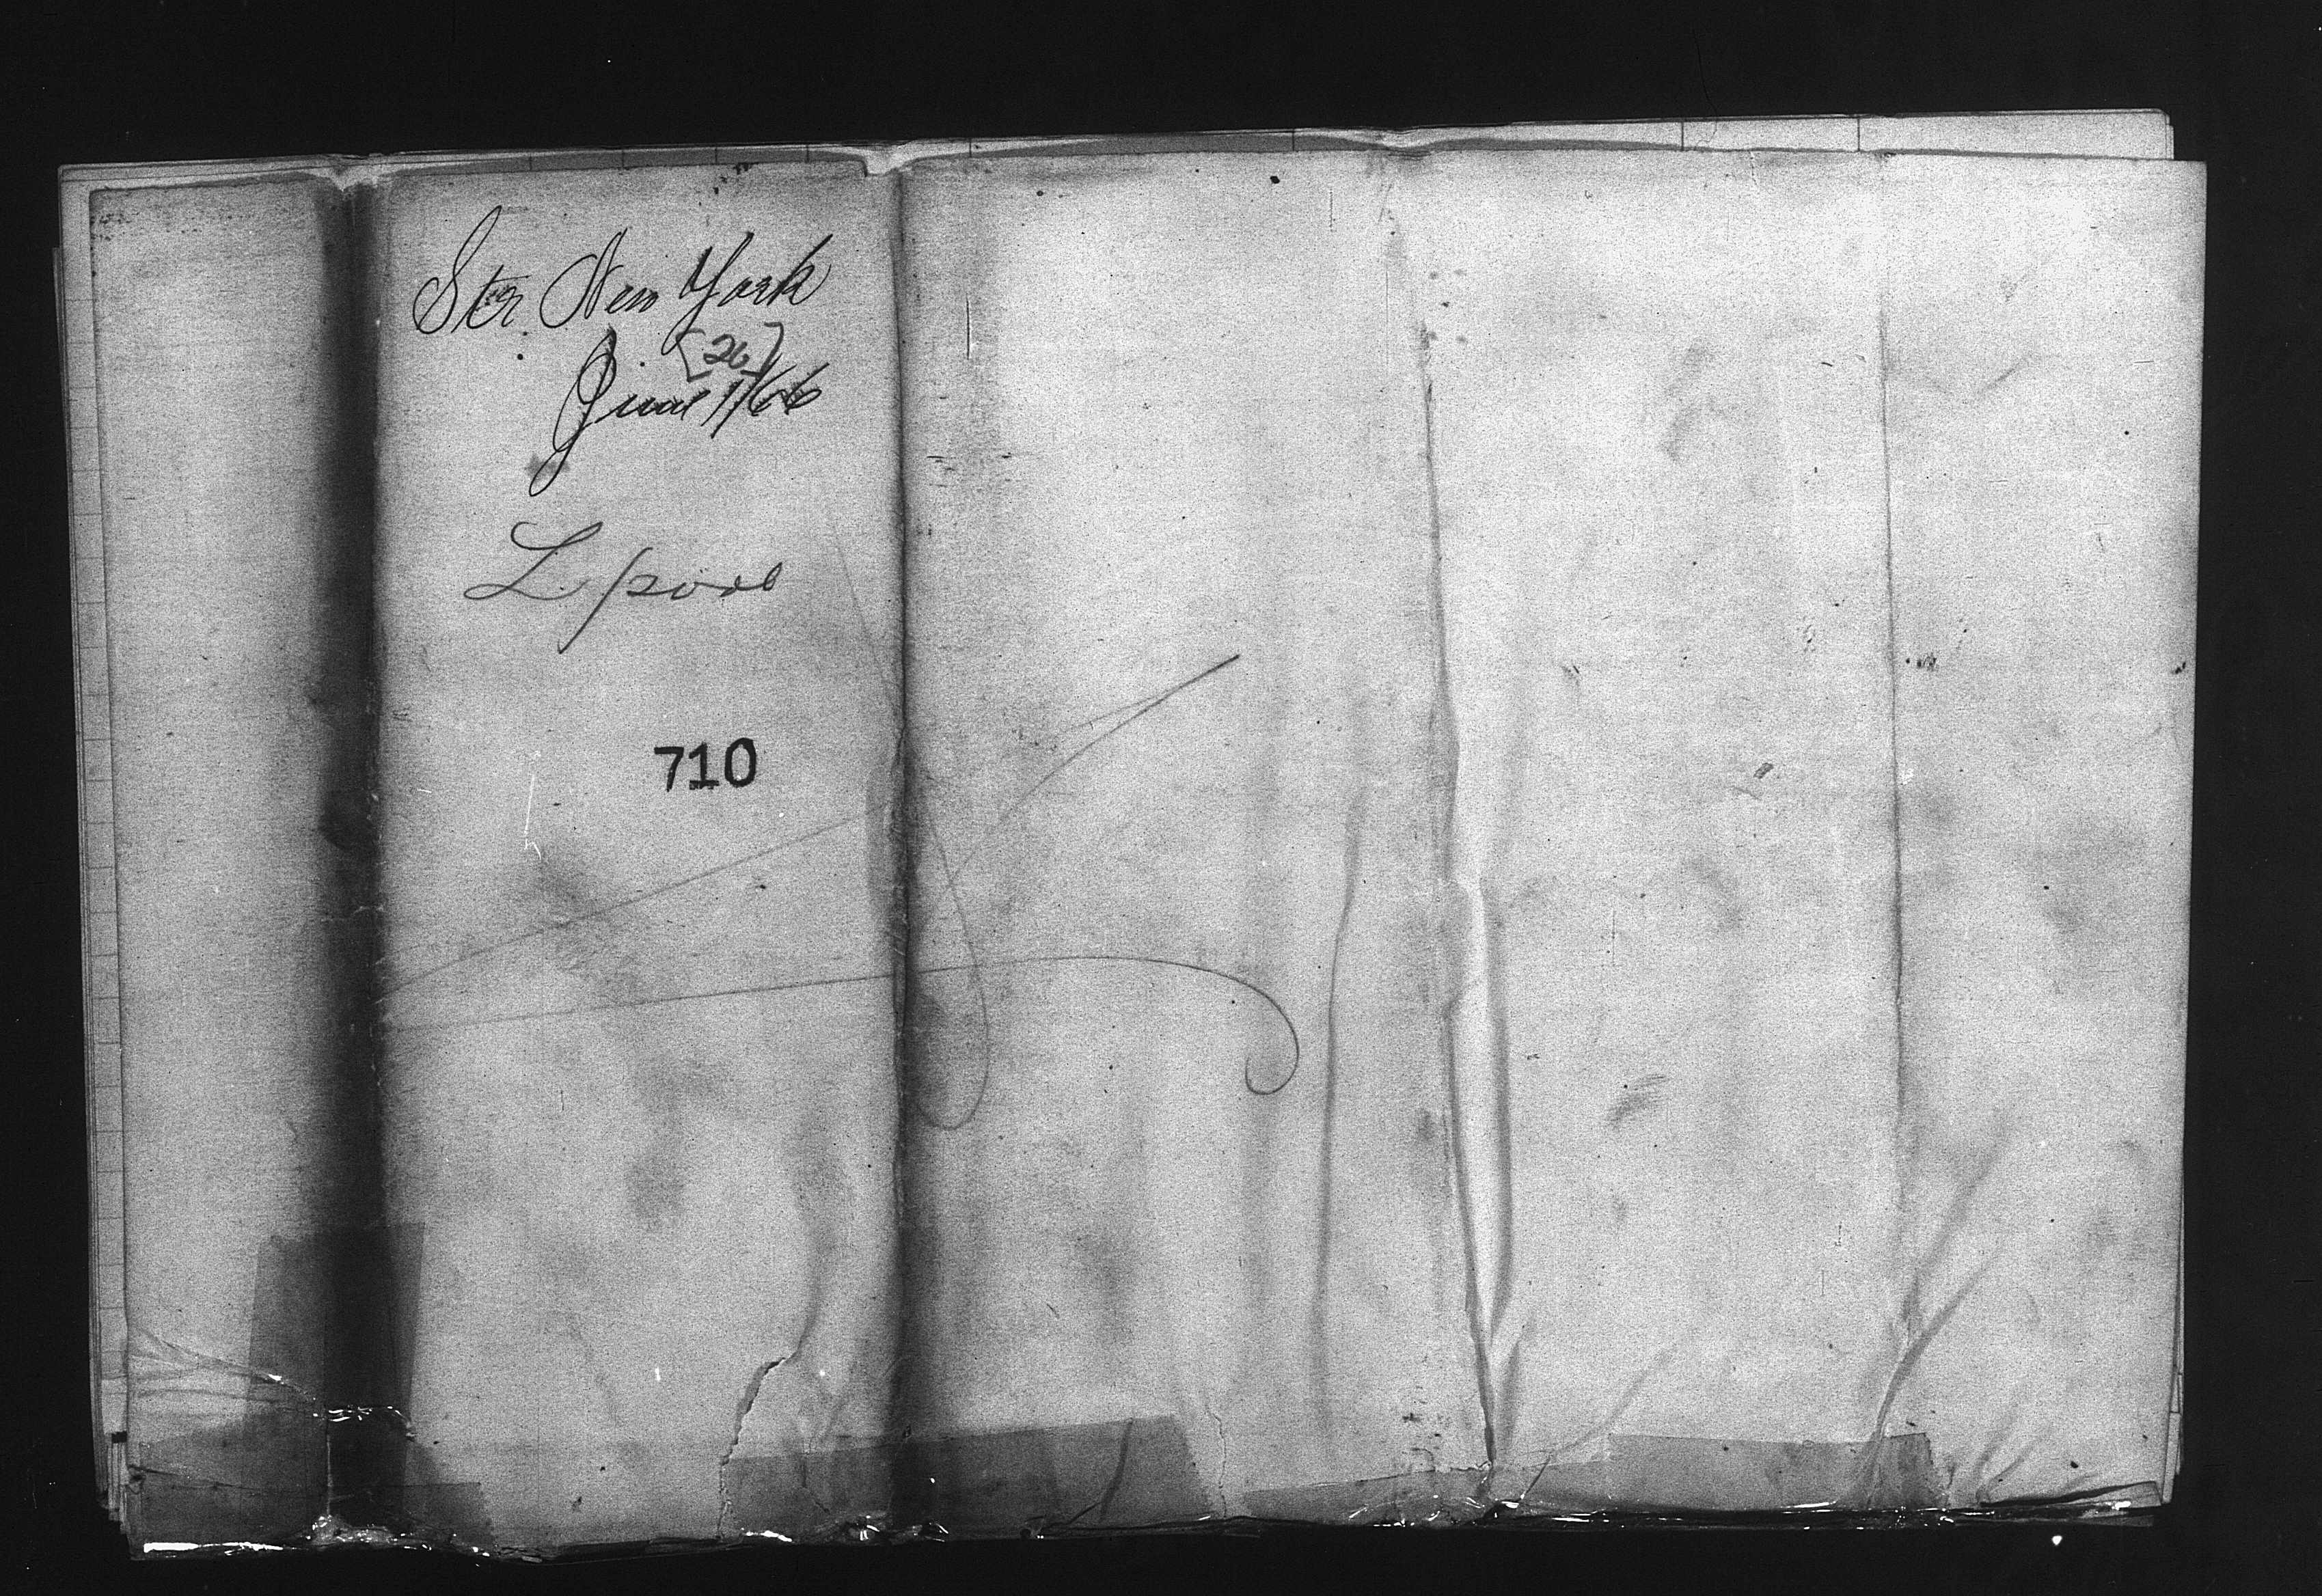 Str. New York
[26]
June 1/66
L.pool
710